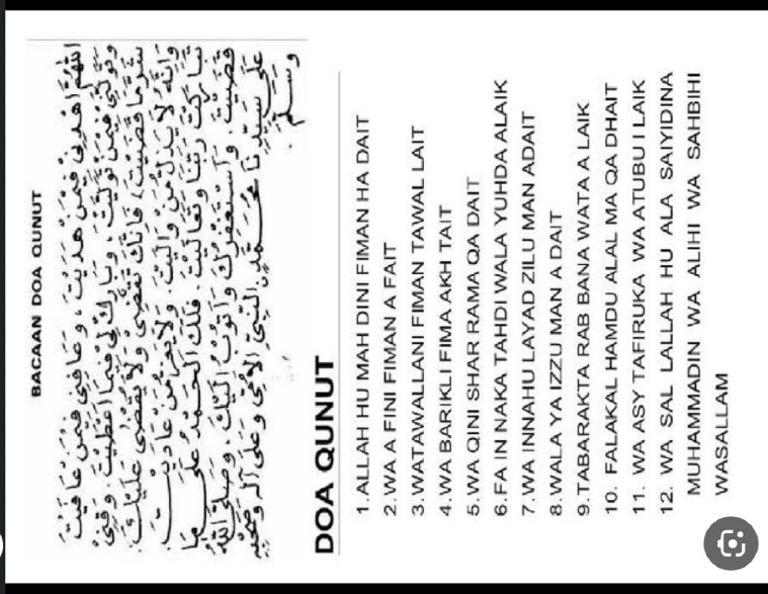 BACAAN DOA QUNUT
اَللّٰهُمَّ اهْدِنِيْ فِيْمَنْ هَدَيْتَ، وَعَافِنِيْ فِيْمَنْ عَافَيْتَ
وَتَوَلَّنِيْ فِيْمَنْ تَوَلَّيْتَ، وَبَارِكْ لِيْ فِيْمَا اَعْطَيْتَ، وَقِنِيْ
شَرَّ مَا قَضَيْتَ، فَاِنَّكَ تَقْضِيْ وَلَا يُقْضَى عَلَيْكَ
وَاِنَّهُ لَا يَذِلُّ مَنْ وَالَيْتَ، وَلَا يَعِزُّ مَنْ عَادَيْتَ
تَبَارَكْتَ رَبَّنَا وَتَعَالَيْتَ، فَلَكَ الْحَمْدُ عَلَى مَا
قَضَيْتَ، وَاَسْتَغْفِرُكَ وَاَتُوْبُ اِلَيْكَ، وَصَلَّى اللّٰهُ
عَلَى سَيِّدِنَا مُحَمَّدٍ النَّبِيِّ الْاُمِّيِّ وَعَلَى اٰلِهِ وَصَحْبِهِ
وَسَلَّمَ
DOA QUNUT
1.ALLAH HU MAH DINI FIMAN HA DAIT
2.WA A FINI FIMAN A FAIT
3.WATAWALLANI FIMAN TAWAL LAIT
4.WA BARIKLI FIMA AKH TAIT
5.WA QINI SHAR RAMA QA DAIT
6.FA IN NAKA TAHDI WALA YUHDA ALAIK
7.WA INNAHU LAYAD ZILU MAN ADAIT
8.WALA YA IZZU MAN A DAIT
9.TABARAKTA RAB BANA WATA A LAIK
10. FALAKAL HAMDU ALAL MA QA DHAIT
11. WA ASY TAFIRUKA WA ATUBU I LAIK
12. WA SAL LALLAH HU ALA SAIYIDINA
MUHAMMADIN WA ALIHI WA SAHBIHI
WASALLAM